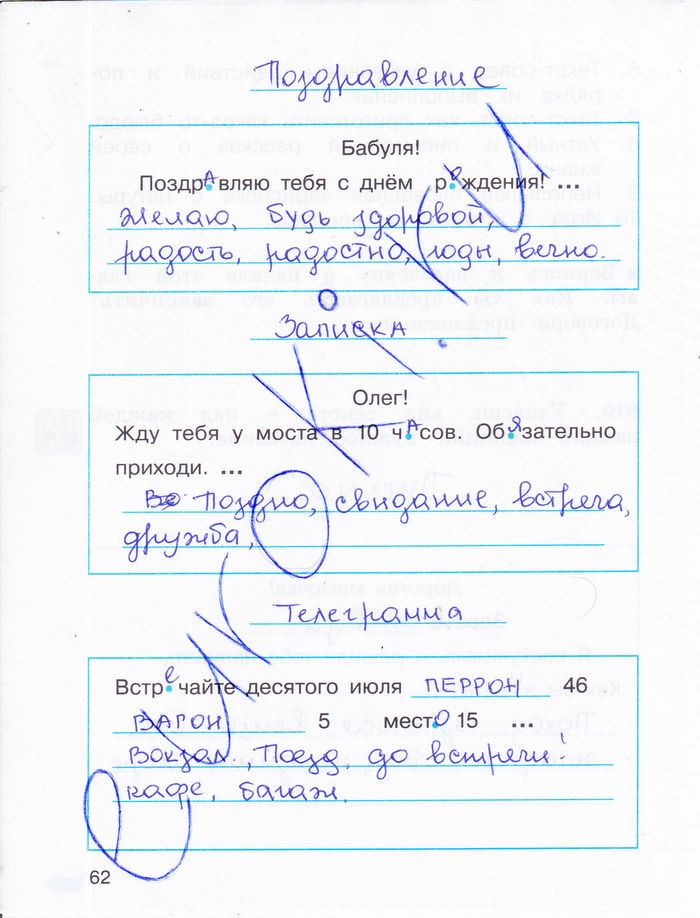 Поздравление
Бабуля!
Поздравляю тебя с днём рождения! ...
Желаю, будь здоровой,
радость, радостно, годы, вечно.
Записка
Олег!
Жду тебя у моста в 10 часов. Обязательно
приходи. ...
поздно, свидание, встреча,
дружба,
Телеграмма
Встречайте десятого июля ПЕРРОН 46
ВАГОН 5 место 15 ...
Вокзал, Поезд, до встречи!
кафе, багаж.
62